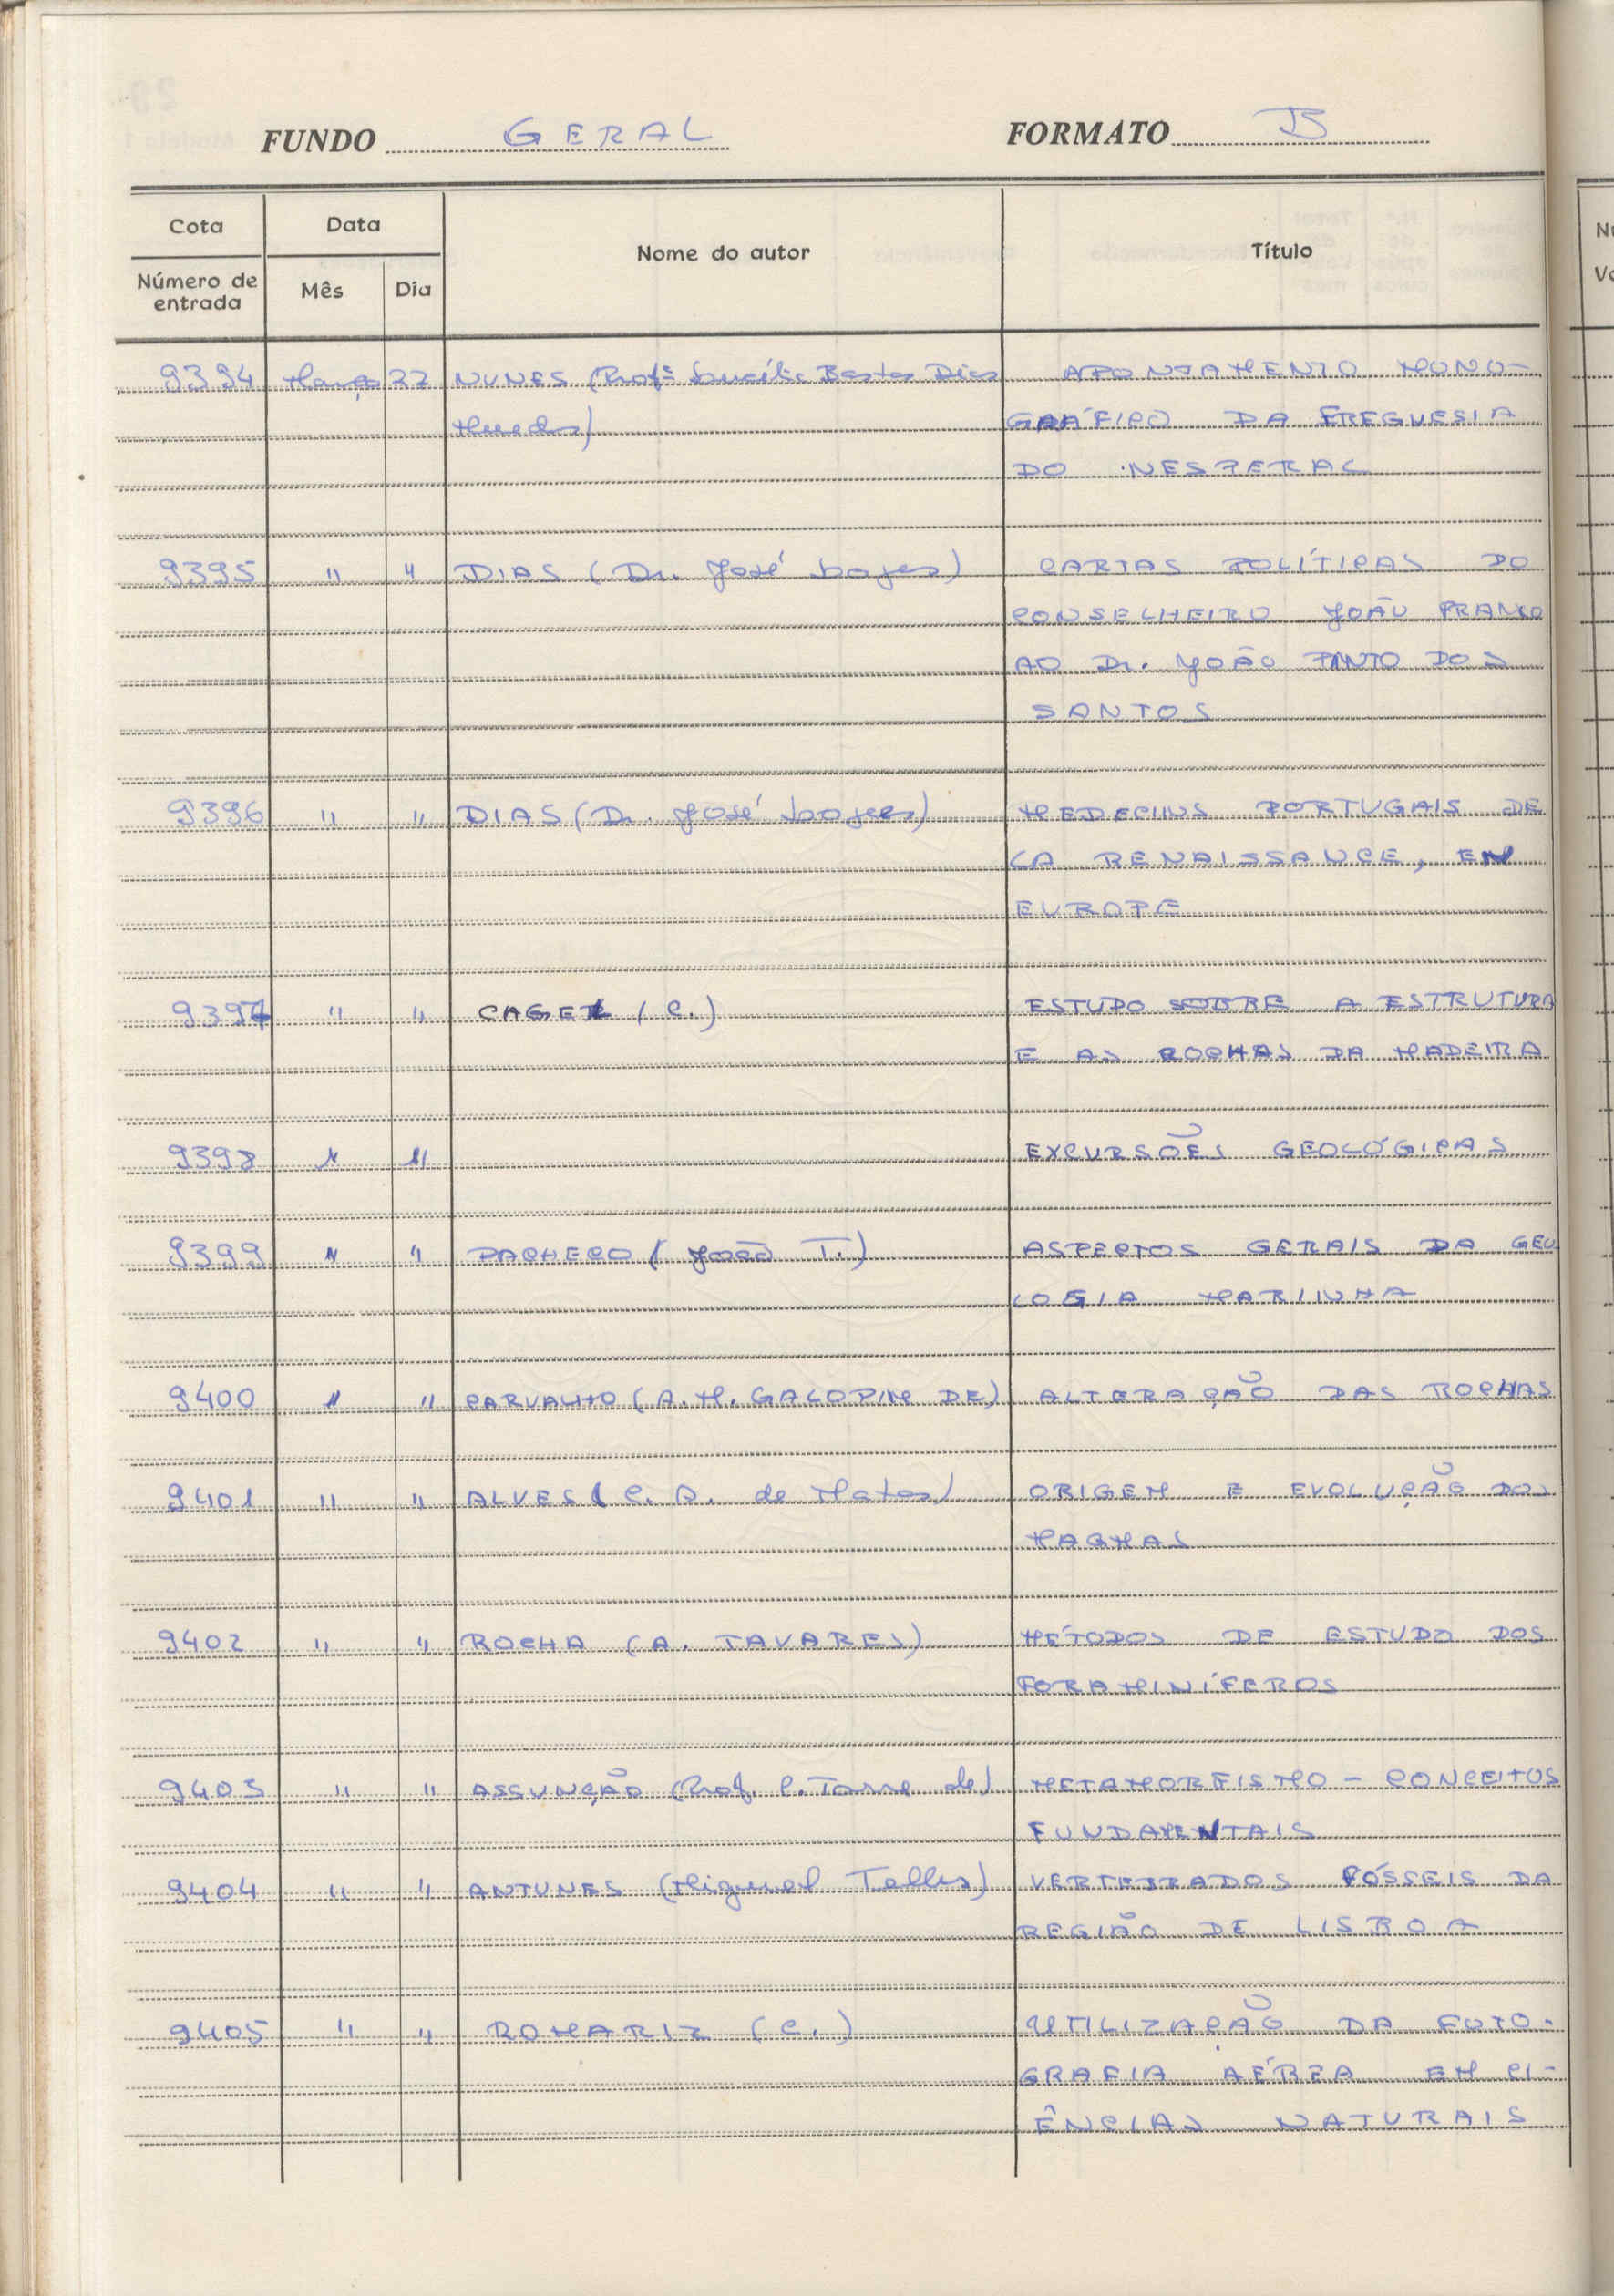 FUNDO GERAL FORMATO B
Cota Data Nome do autor Título
Número de entrada Mês Dia
9394 Março 22 NUNES (Profª Lucília Bastos Dias APONTAMENTO MONO-
GRÁFICO DA FREGUESIA
DO NESPERAL
9395 " " DIAS (Dr. José Lopes) CARTAS POLÍTICAS DO
CONSELHEIRO JOÃO FRANCO
AO Dr. JOÃO PINTO DOS
SANTOS
9396 " " DIAS (Dr. José Lopes) MEDECINS PORTUGAIS DE
LA RENAISSANCE, EN
EUROPE
9397 " " GAGEL (C.) ESTUDO SOBRE A ESTRUTURA
E AS ROCHAS DA MADEIRA
9398 " " EXCURSÕES GEOLÓGICAS
9399 " " PACHECO (João T.) ASPECTOS GERAIS DA GEO
LOGIA MARINHA
9400 " " CARVALHO (A. M. GALOPIM DE) ALTERAÇÃO DAS ROCHAS
9401 " " ALVES (C. A. de Matos) ORIGEM E EVOLUÇÃO DOS
MAGMAS
9402 " " ROCHA (A. TAVARES) MÉTODOS DE ESTUDO DOS
FORAMINÍFEROS
9403 " " ASSUNÇÃO (Prof. C. Torre de) METAMORFISMO - CONCEITOS
FUNDAMENTAIS
9404 " " ANTUNES (Miguel Telles) VERTEBRADOS FÓSSEIS DA
REGIÃO DE LISBOA
9405 " " ROMARIZ (C.) UTILIZAÇÃO DA FOTO-
GRAFIA AÉREA EM CI-
ÊNCIAS NATURAIS